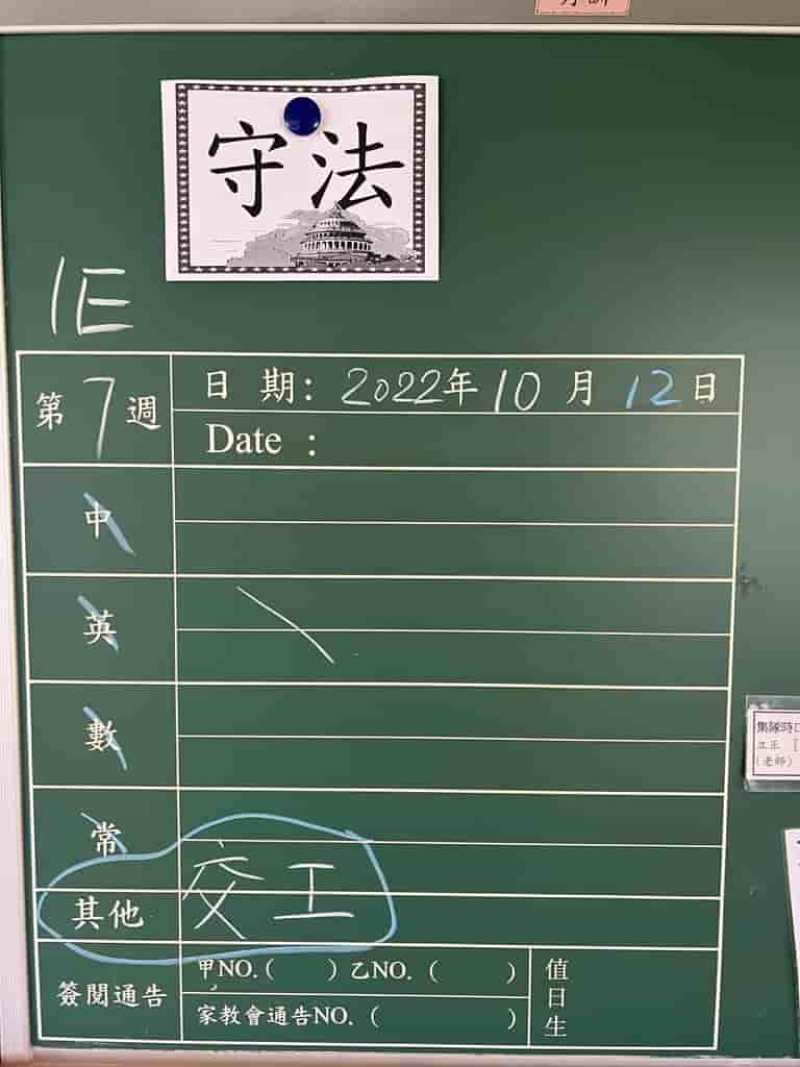 守法
1E
第7週
日期：2022年10月12日
Date：
中
英
數
常
其他 交工
簽閱通告
甲NO.（ ）乙NO.（ ）
家教會通告NO.（ ）
值日生
集隊時
立正
（老師）